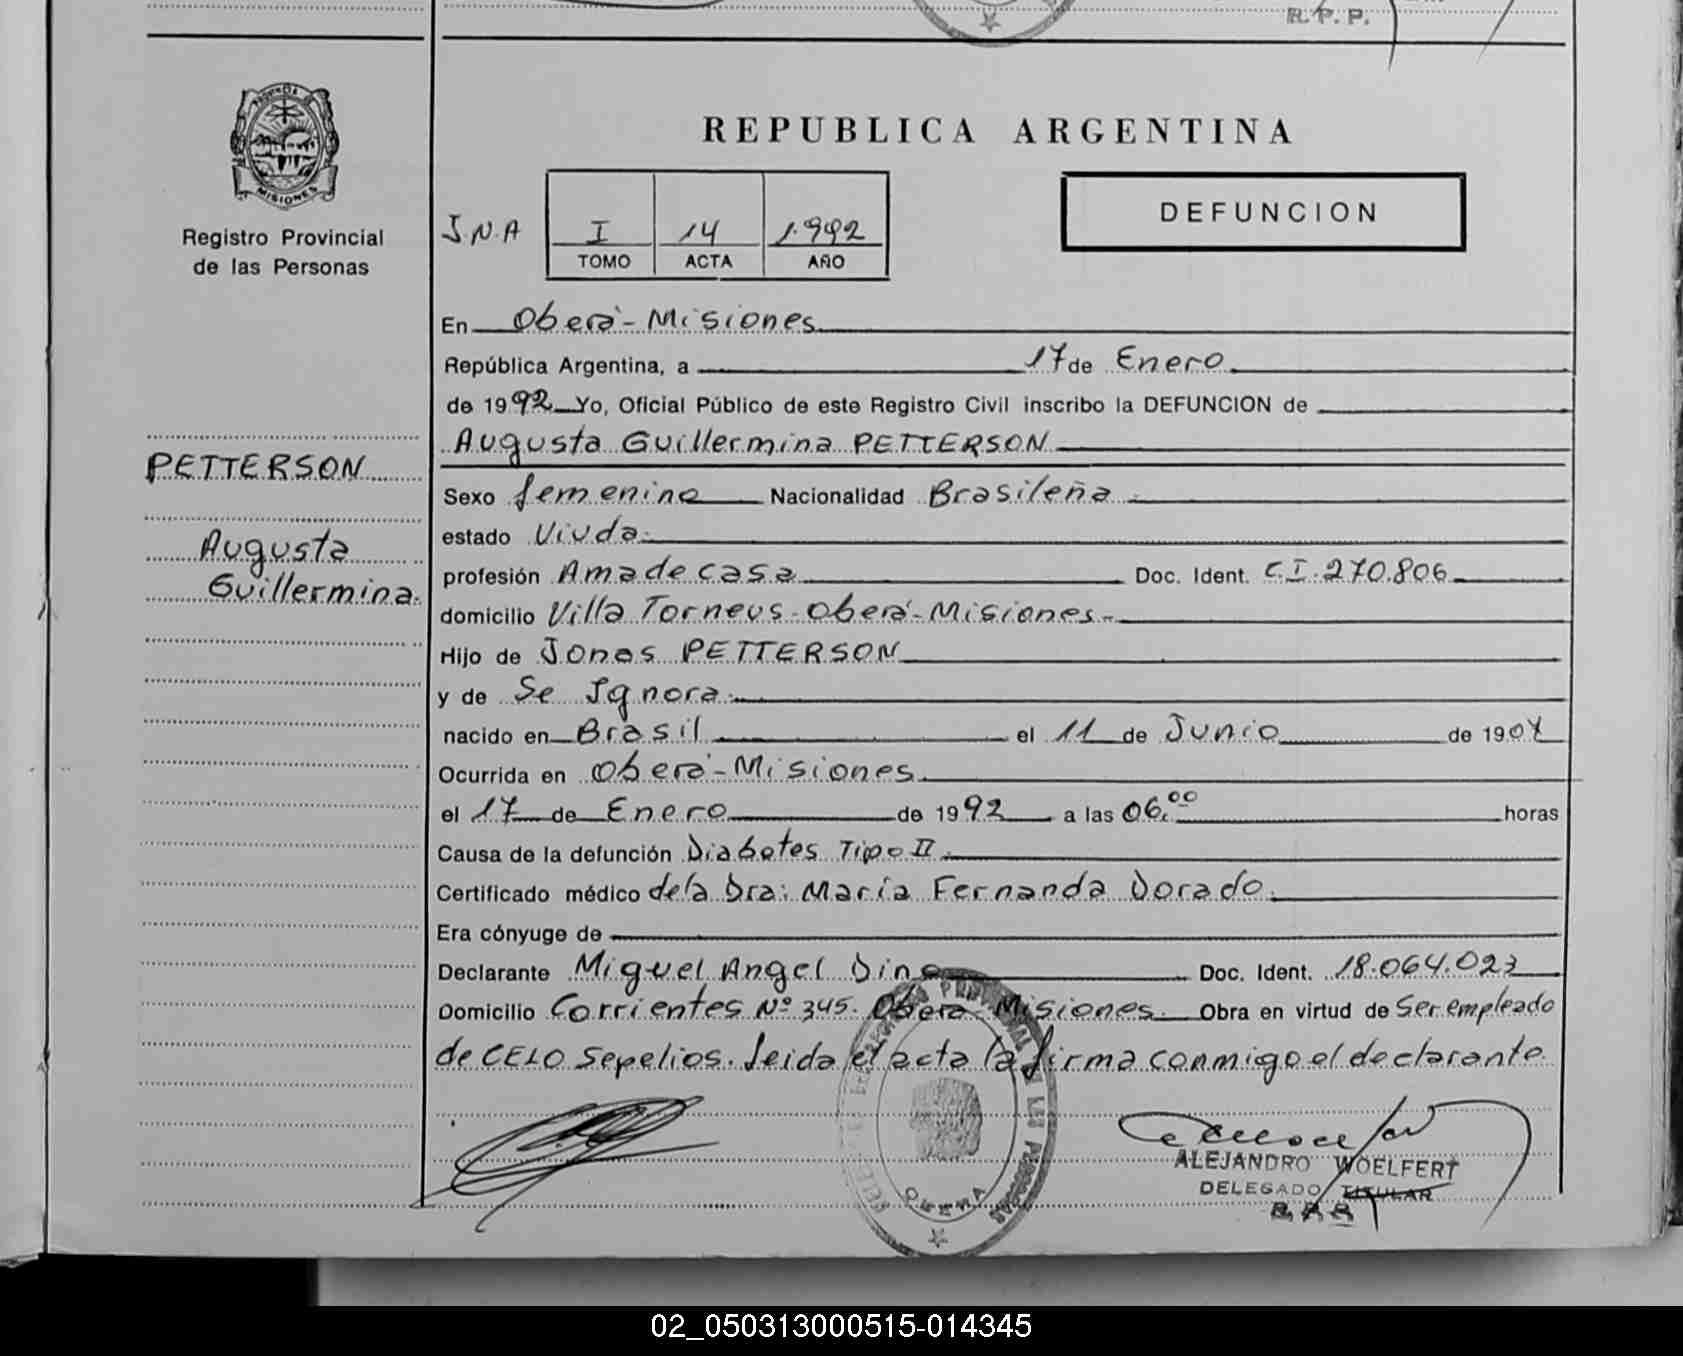 R.P.P.
PROVINCIA DE
MISIONES
Registro Provincial
de las Personas
REPUBLICA ARGENTINA
DEFUNCION
J.N.A I 14 1.992
TOMO ACTA AÑO
En Oberá - Misiones
República Argentina, a 17 de Enero
de 1992 Yo, Oficial Público de este Registro Civil inscribo la DEFUNCION de
Augusta Guillermina PETTERSON
PETTERSON
Augusta
Guillermina.
Sexo femenino Nacionalidad Brasileña
estado Viuda.
profesión Ama de casa Doc. Ident. C.I. 270.806
domicilio Villa Torneus - Oberá - Misiones -
Hijo de Jonas PETTERSON
y de Se Ignora
nacido en Brasil el 11 de Junio de 1907
Ocurrida en Oberá - Misiones
el 17 de Enero de 1992 a las 06.00 horas
Causa de la defunción Diabetes Tipo II.
Certificado médico de la Dra: María Fernanda Dorado.
Era cónyuge de
Declarante Miguel Angel Dino Doc. Ident. 18.064.023
Domicilio Corrientes Nº 345. Oberá - Misiones. Obra en virtud de Ser empleado
de CELO Sepelios. Leida el acta la firma conmigo el declarante.
ALEJANDRO WOELFERT
DELEGADO TITULAR
02_050313000515-014345